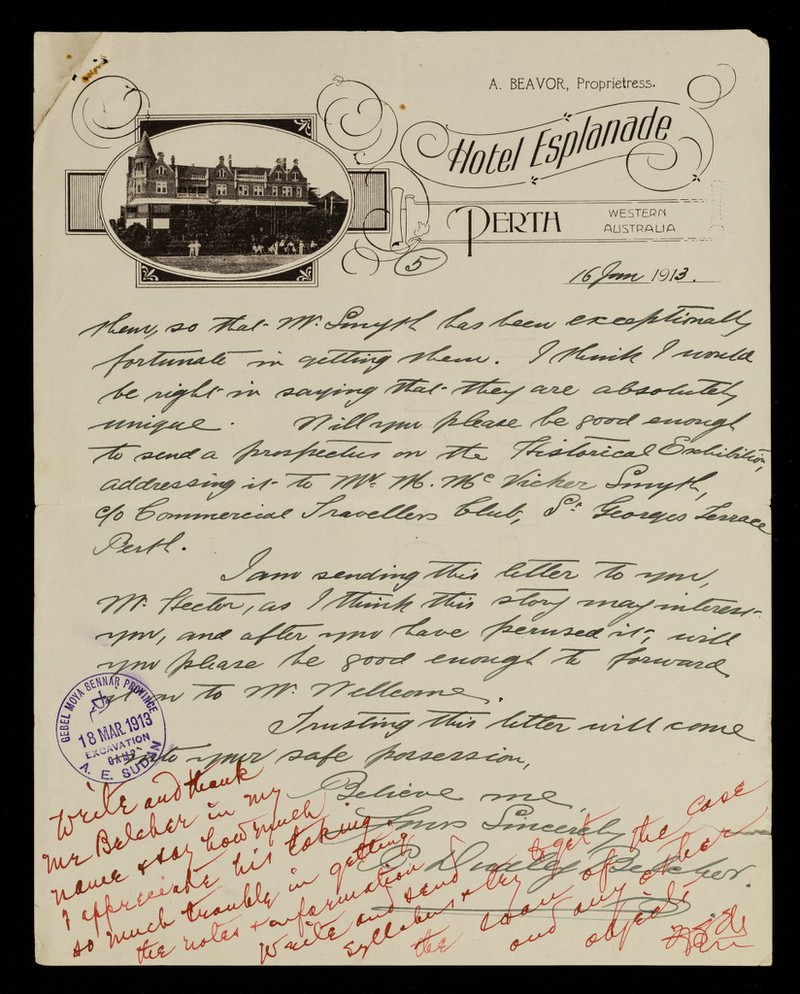 A. BEAVOR, Proprietress.
Hotel Esplanade
PERTH
WESTERN
AUSTRALIA
5
16 Jan 1913.
them, so that Mr. Smyth has been exceptionally
fortunate in getting them. I think I would
be right in saying that they are absolutely
unique. Will you please be good enough
to send a prospectus on the Historical Exhibition,
addressing it to Mr. M. Mc Vicker Smyth,
c/o Commercial Travellers Club, St Georges Terrace
Perth.
I am sending this letter to you,
Mr. Hector, as I think this story may interest
you, and after you have perused it, will
you please be good enough to forward
it on to Mr. Wellcome.
Trusting this letter will come
into your safe possession,
Believe me,
Yours Sincerely
P Dudley Belcher.
GEBEL MOYA SENNAR PROVINCE
18 MAR. 1913
EXCAVATION
CAMP
A. E. SUDAN
Write and thank
Mr Belcher in my
name & say how much
I appreciate his taking
so much trouble in getting
the notes & information
Write and send
syllabus & try to get the case
the loan of the
and any other
objects